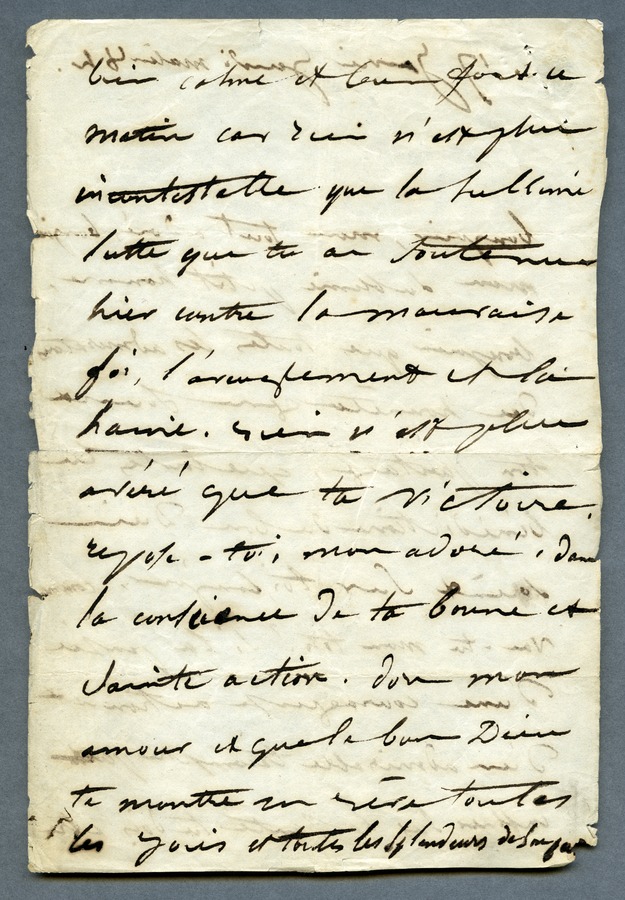 bien calme et bien fort ce
matin car rien n'est plus
incontestable que la sublime
lutte que tu as soutenue
hier contre la mauvaise
foi, l'aveuglement et la
haine. rien n'est plus
avéré que ta victoire.
repose-toi, mon adoré, dans
la conscience de ta bonne et
sainte action. dors mon
amour et que le bon Dieu
te montre en rêve toutes
les joies et toutes les splendeurs de son